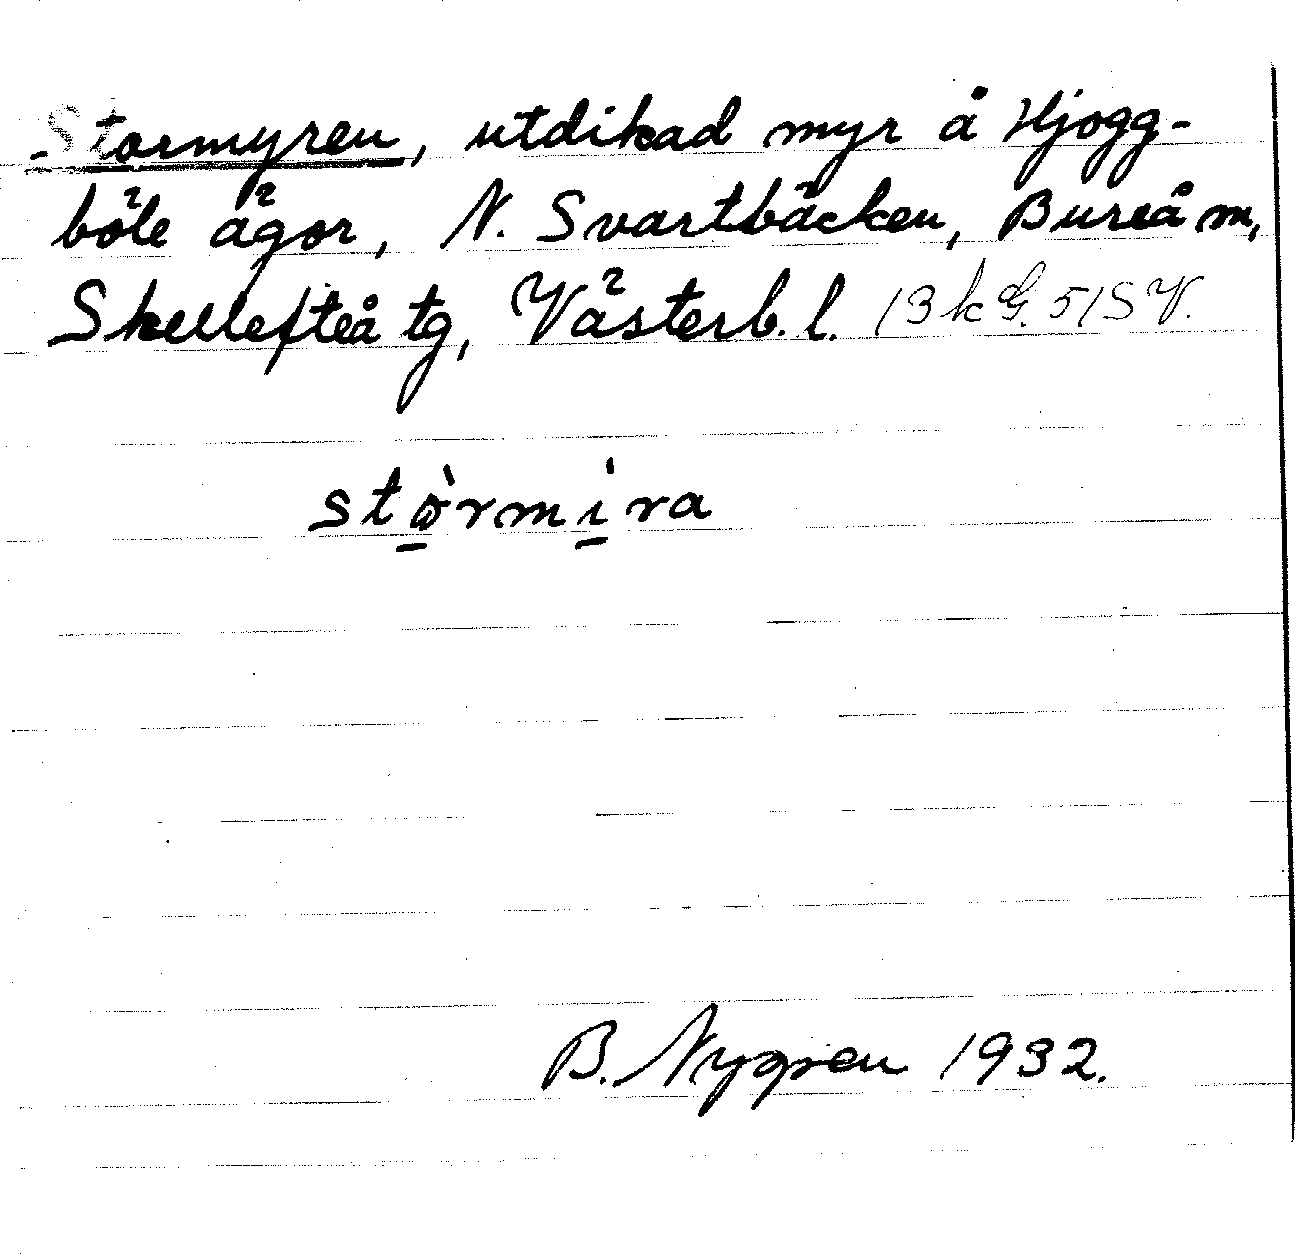 Stormyren, utdikad myr å Hjogg-
böle ägor, N. Svartbäcken, Bureå m,
Skellefteå tg, Västerb. l. 13 k G. 51 S V.
stòrmìra
B. Nygren 1932.